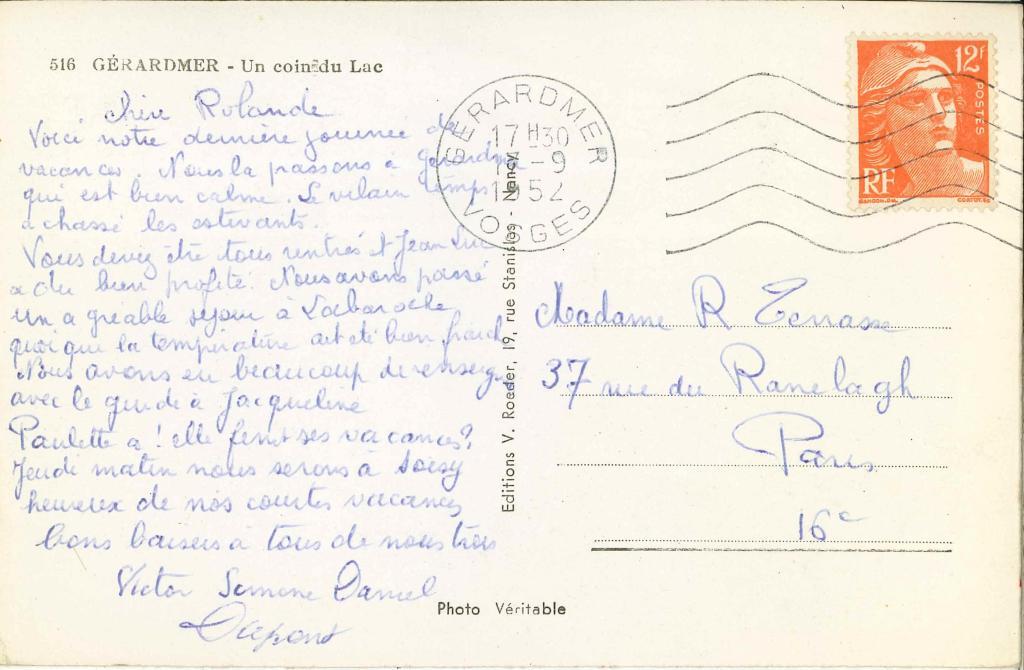 516 GÉRARDMER - Un coin du Lac
chère Rolande
Voici notre dernière journée de
vacances. Nous la passons à Gérardmer
qui est bien calme. Le vilain temps
a chassé les estivants.
Vous devez être tous rentrés et Jean Luc
a du bien profité. Nous avons passé
un agréable séjour à Labaroche
quoi que la température ait été bien fraiche
Nous avons eu beaucoup de
avec le guide à Jacqueline
Paulette a ! elle ses vacances?
Jeudi matin nous serons à Soisy
heureux de nos courtes vacances
bons baisers à tous de nous trois
Victor Simone Daniel
Dupont
Photo Véritable
Editions V. Roeder, 19, rue Stanislas - Nancy
GERARDMER
17 H30
-9
1952
VOSGES
12F
POSTES
RF
GANDON
Madame R Terrasse
37 rue du Ranelagh
Paris
16e